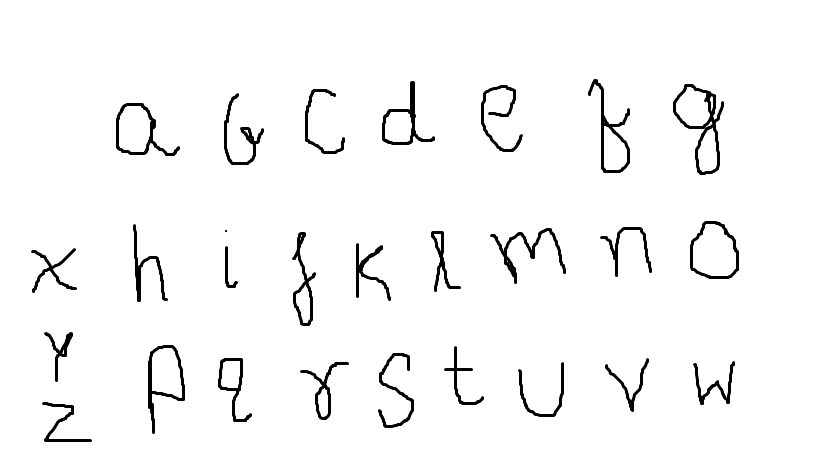 a b c d e f g
x h i j k l m n o
y p q r s t u v w
z